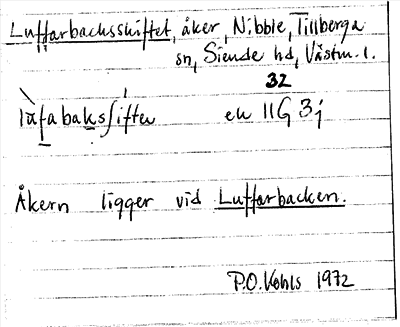 Luffarbacksskiftet, åker, Nibble, Tillberga
sn, Siende hd, Västm. l.
32
ek 11G 3j
Åkern ligger vid Luffarbacken.
P.O. Kohls 1972